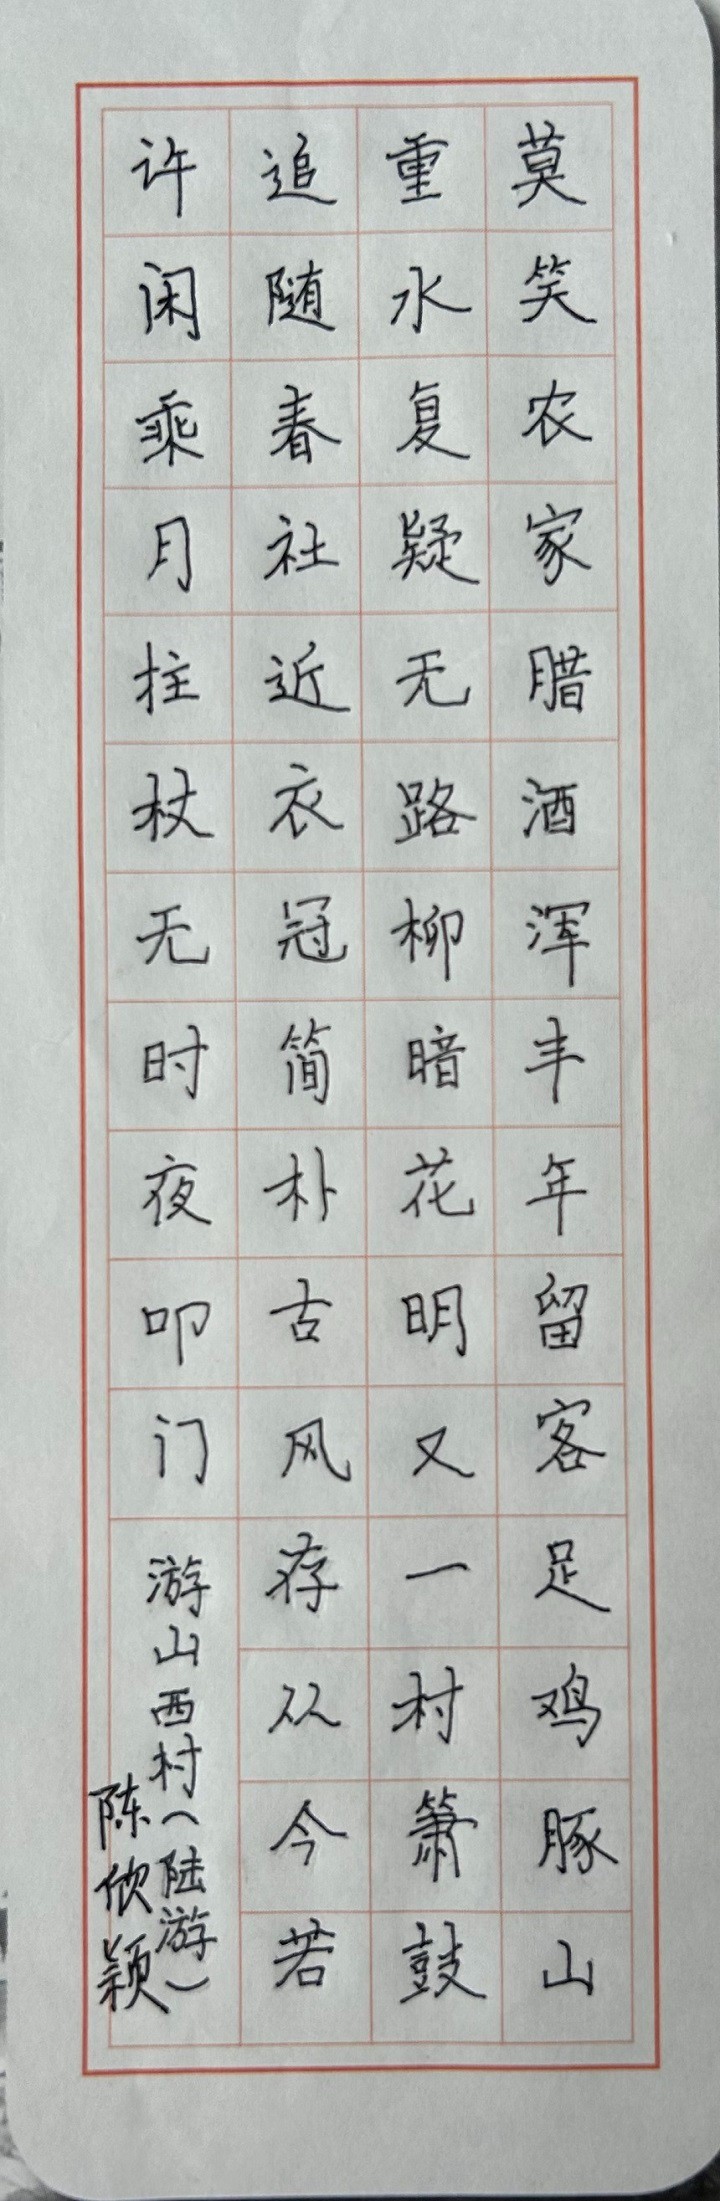 莫笑农家腊酒浑丰年留客足鸡豚山
重水复疑无路柳暗花明又一村箫鼓
追随春社近衣冠简朴古风存从今若
许闲乘月拄杖无时夜叩门
游山西村(陆游)
陈欣颖